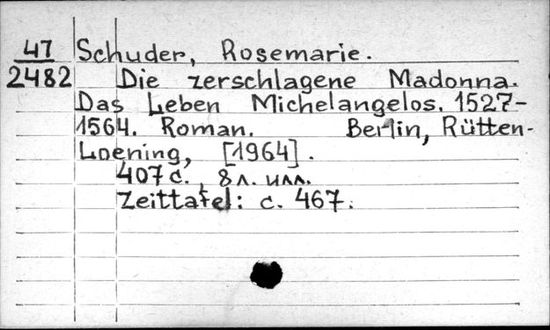 47 Schuder, Rosemarie.
2482 Die zerschlagene Madonna.
Das Leben Michelangelos. 1527-
1564. Roman. Berlin, Rütten-
Loening, [1964].
407 с., 8 л. илл.
Zeittafel: с. 467.